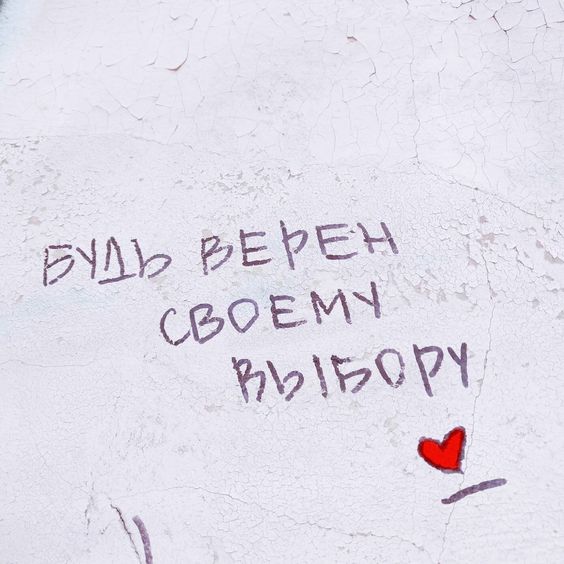 БУДЬ ВЕРЕН
СВОЕМУ
ВЫБОРУ